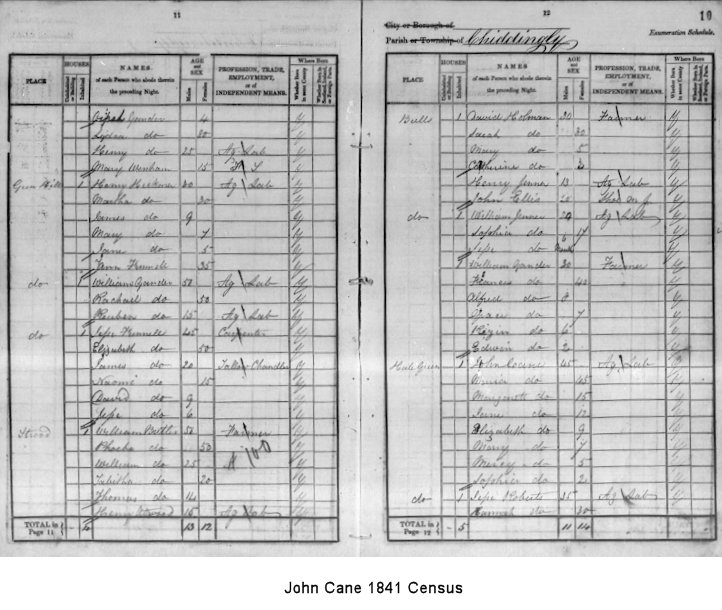 11
PLACE
HOUSES
Uninhabited or Building
Inhabited
NAMES
of each Person who abode therein the preceding Night.
AGE and SEX
Males
Females
PROFESSION, TRADE, EMPLOYMENT, or of INDEPENDENT MEANS.
Where Born
Whether Born in same County
Whether Born in Scotland, Ireland, or Foreign Parts.
Gander 4
Lydia do 30 y
Henry do 25 Ag Lab y
Mary Wenham 15 F S y
Gun Hill 1 Henry 30 Ag Lab y
Martha do 30 y
James do 9 y
Mary do 7 y
Jane do 5 y
Ann Funnell 35 y
do 1 William Gander 50 Ag Lab y
Rachael do 50 y
Reuben do 15 Ag Lab y
do 1 Jesse Funnell 45 Carpenter y
Elizabeth do 50 y
James do 20 Tallow Chandler y
Naomi do 15 y
David do 9 y
Jesse do 6 y
Strood 1 William Butler 50 Farmer y
Phoebe do 50 y
William do 25 y
Tabitha do 20 y
Thomas do 14 y
Henry Wood 15 Ag Lab y
TOTAL in Page 11
13 12
12
10
City or Borough of
Parish or Township of Chiddingly
Enumeration Schedule.
PLACE
HOUSES
Uninhabited or Building
Inhabited
NAMES
of each Person who abode therein the preceding Night.
AGE and SEX
Males
Females
PROFESSION, TRADE, EMPLOYMENT, or of INDEPENDENT MEANS.
Where Born
Whether Born in same County
Whether Born in Scotland, Ireland, or Foreign Parts.
Bulls 1 David Holman 30 Farmer y
Sarah do 30 y
Mary do 5 y
Catherine do y
Henry Jenner 13 Ag Lab y
John Ellis 20 y
do 1 William Jenner 20 Ag Lab y
Sophia do 17 y
Jesse do 6 Months y
1 William Gander 30 Farmer y
Frances do 40 y
Alfred do 8 y
Grace do 7 y
do 6 y
Edwin do 2 y
Hale Green 1 John 45 Ag Lab
do 45 y
Margarett do 15 y
Jane do 12 y
Elizabeth do 9 y
Mary do 7 y
Mercy do 5 y
Sophia do 2 y
do 1 Jesse Roberts 35 Ag Lab y
Hannah do 30 y
TOTAL in Page 12
5 11 14
John Cane 1841 Census